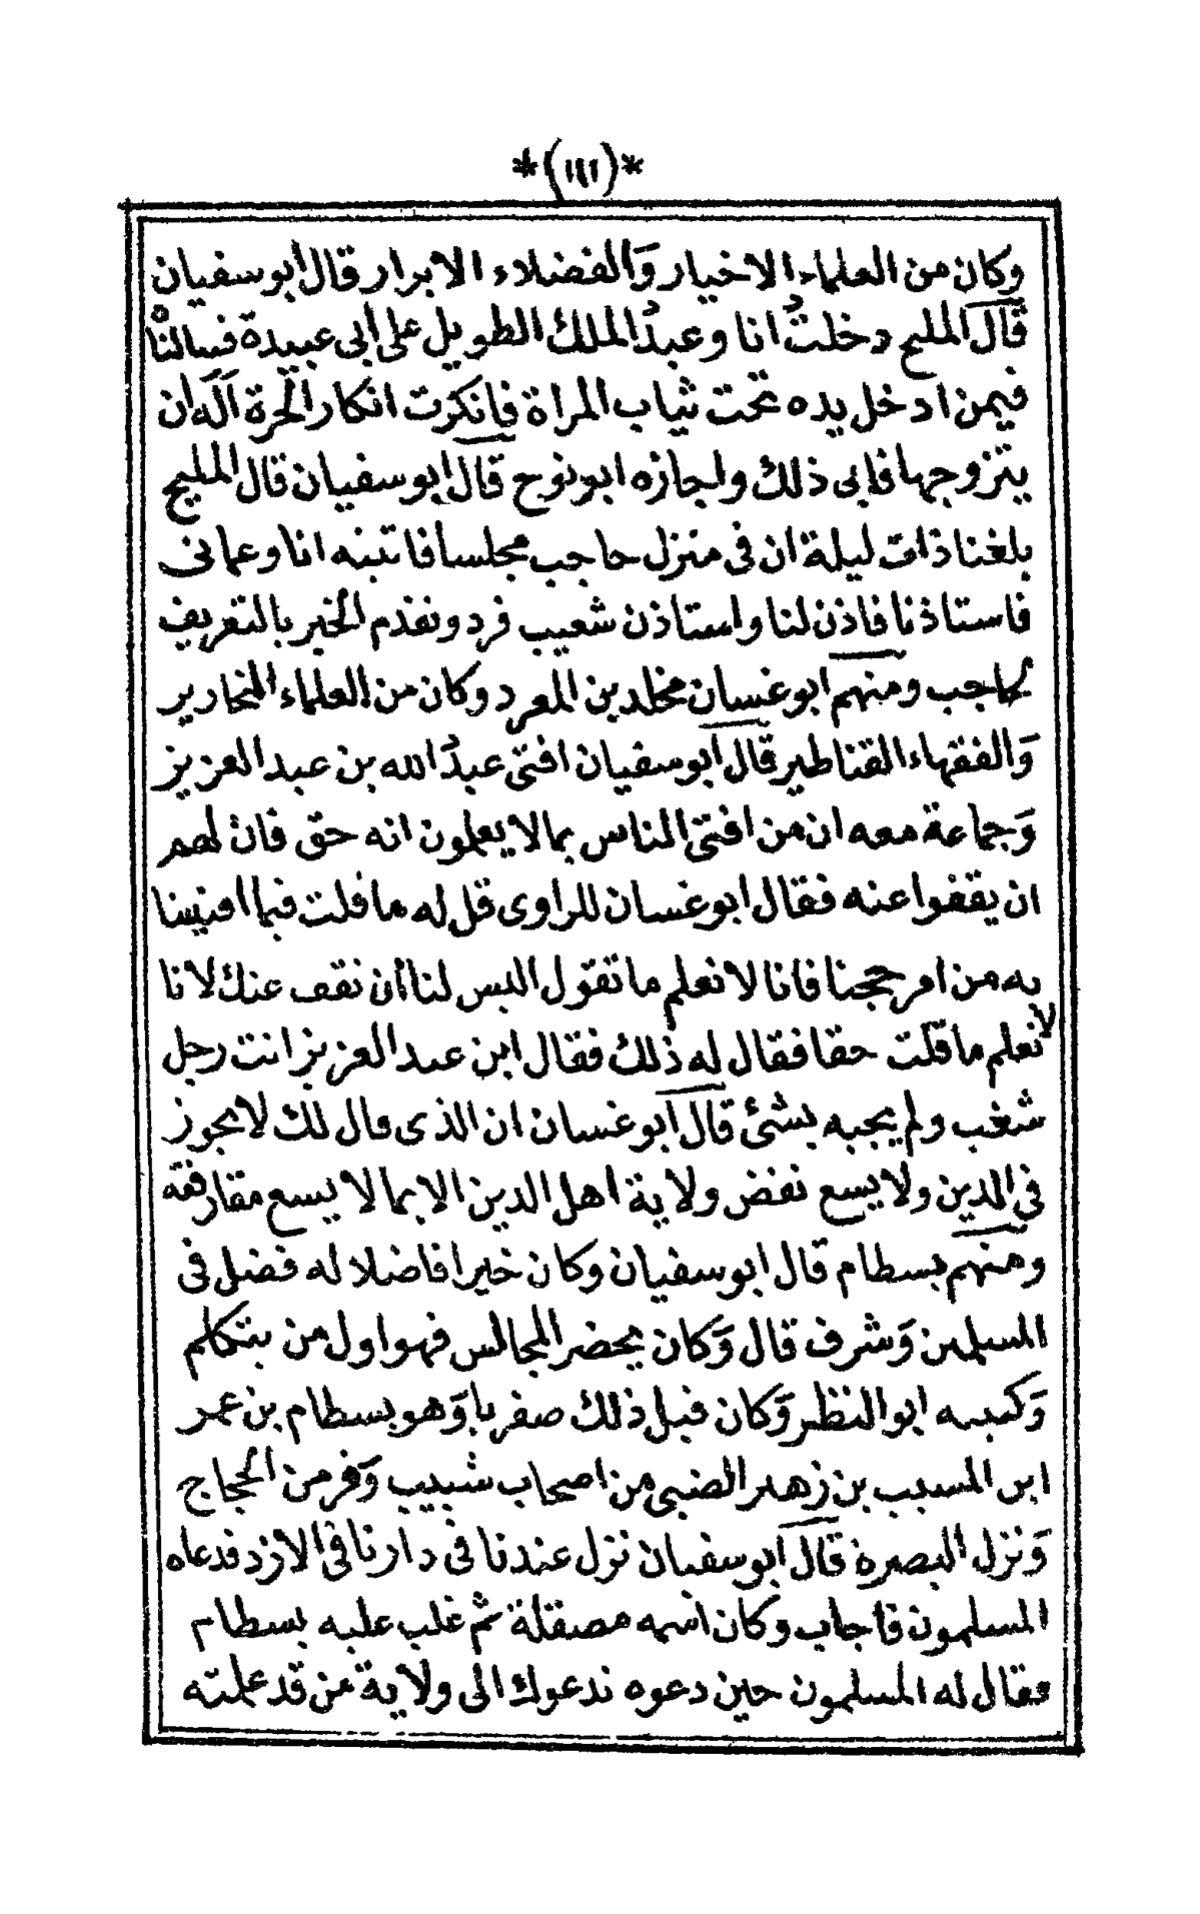 *(١١١)*
وكان من العلماء الاخيار وَالفضلاء الابرار قال ابوسفيان
قال المليح دخلتُ انا وعبدُ الملك الطويل على ابى عبيدة فسالناْ
فيمن ادخل يده تحت ثياب المراة فانكرت انكار الحرة اَلَه ان
يتزوجها فابى ذلك واجازه ابونوح قال ابوسفيان قال المليح
بلغنا ذات ليلة ان فى منزل حاجب مجلسا فاتنبه انا وعمانى
فاستاذنا فاذن لنا واستاذن شعيب فرد ونفذم الخبر بالتعريف
لحاجب ومنهم ابوغسان مخلد بن المعرد وكان من العلماء النحارير
وَالفقهاء القناطير قال ابوسفيان افتى عبدُ الله بن عبد العزيز
وَجماعة معه ان من افتى الناس بما لا يعلمون انه حق فان لهم
ان يقفوا عنه فقال ابوغسان للراوى قل له ما قلت فيما افتيتنا
به من امر حججنا فانا لا نعلم ما تقول اليس لنا أن نقف عنك لانا
لا نعلم ما قلت حقا فقال له ذلك فقال ابن عبد العزيز انت رجل
شغب ولم يجبه بشئ قال ابوغسان ان الذى قال لك لا يجوز
فى الدين ولا يسع نفض ولاية اهل الدين الا بما لا يسع مقارفته
ومنهم بسطام قال ابوسفيان وكان خيرا فاضلا له فضل فى
المسلمين وَشرف قال وَكان يحضر المجالس فهو اول من يتكلم
وَكنيته ابو النظر وَكان قبل ذلك صفريا وَهو بسطام بن عمر
ابن المسيب بن زهير الضبى من اصحاب شبيب وَفر من الحجاج
وَنزل البصرة قال ابوسفيان نزل عندنا فى دارنا فى الازد فدعاه
المسلمون فاجاب وكان اسمه مصقلة ثم غلب عليه بسطام
فقال له المسلمون حين دعوه ندعوك الى ولاية من قد علمته